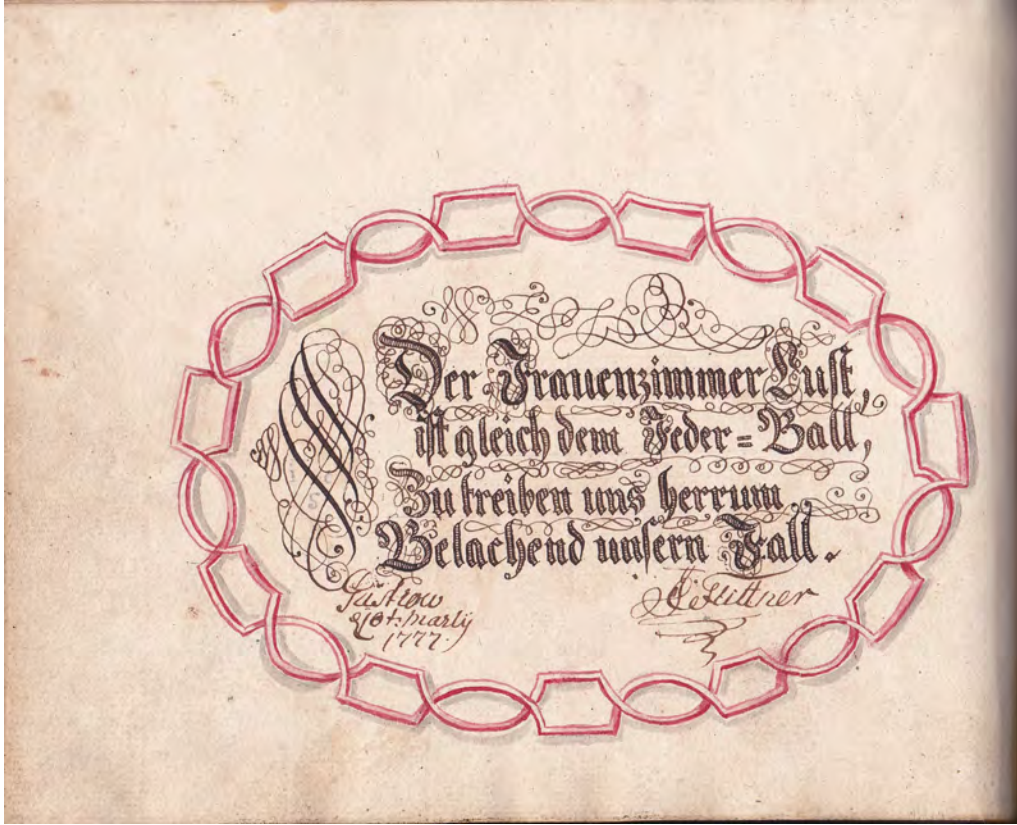 Der Frauenzimmer Lust,
ist gleich dem Feder = Ball,
Zu treiben uns herrum
Belachend unsern Fall.
Güstrow
1777.